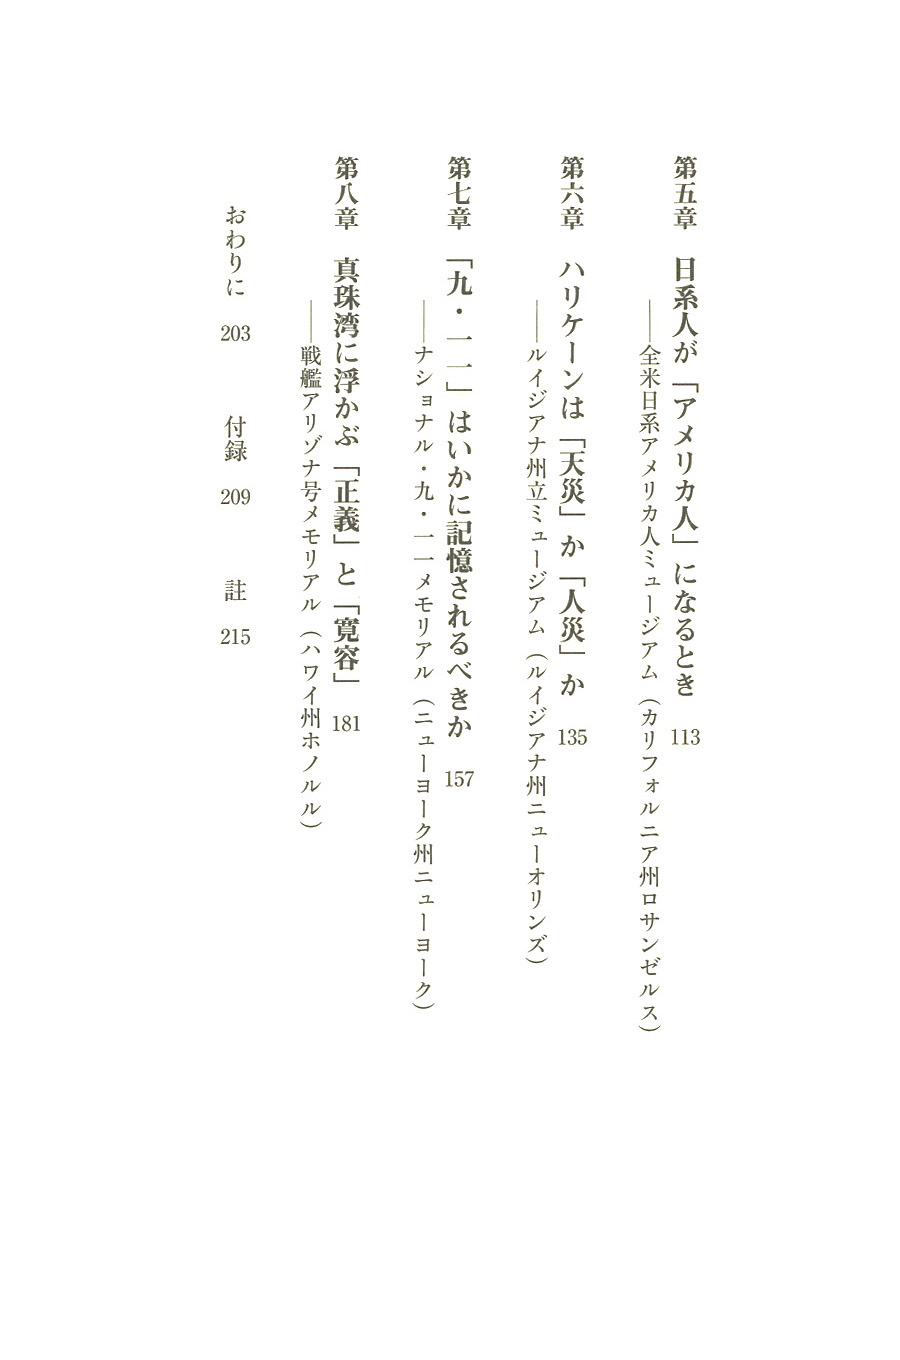 第五章　日系人が「アメリカ人」になるとき　113
――全米日系アメリカ人ミュージアム（カリフォルニア州ロサンゼルス）
第六章　ハリケーンは「天災」か「人災」か　135
――ルイジアナ州立ミュージアム（ルイジアナ州ニューオリンズ）
第七章　「九・一一」はいかに記憶されるべきか　157
――ナショナル・九・一一メモリアル（ニューヨーク州ニューヨーク）
第八章　真珠湾に浮かぶ「正義」と「寛容」　181
――戦艦アリゾナ号メモリアル（ハワイ州ホノルル）
おわりに　203　　付録　209　　註　215